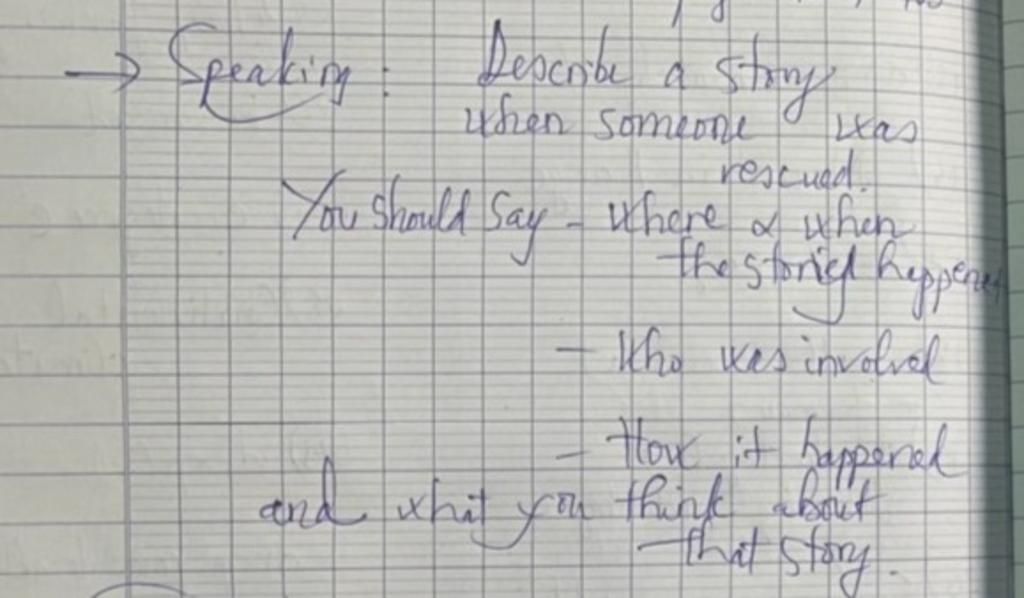 → Speaking : Describe a story
when someone was
rescued.
You should say - where & when
the storied happened
- Who was involved
- How it happened
and what you think about
that story.